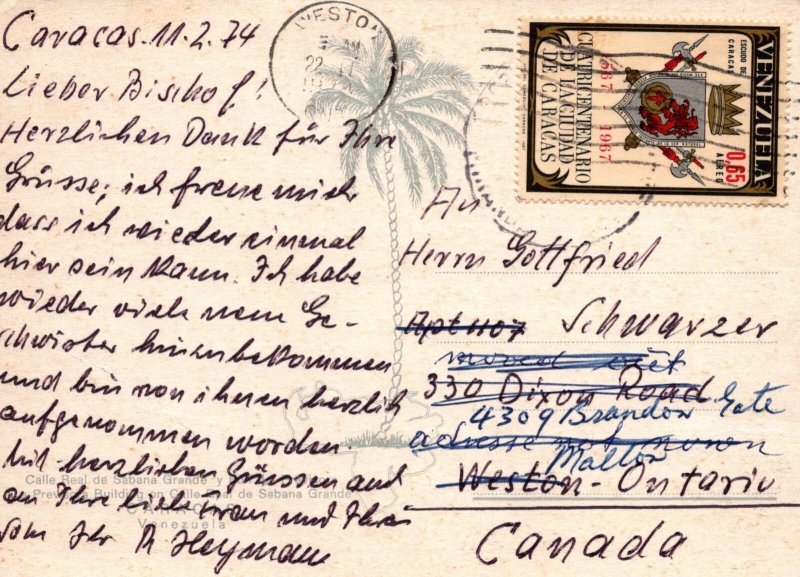 Caracas. 11.2.74
Lieber Bischof!
Herzlichen Dank für Ihre
Grüsse; ich freue mich
dass ich wieder einmal
hier sein kann. Ich habe
wieder viele neue Ge-
schwister hinzubekommen
und bin von ihnen herzlich
aufgenommen worden.
Mit herzlichen Grüssen auch
an Ihre liebe Frau und
vom Ihr R. Heymann
Calle Real de Sabana Grande y
Building on Calle Real de Sabana Grande
Venezuela
WESTON
22
VENEZUELA
ESCUDO DE
CARACAS
0,65
AEREO
1567 1967
CUATRICENTENARIO
DE LA CIUDAD
DE CARACAS
An
Herrn Gottfried
Apt 1107 Schwarzer
moved
330 Dixon Road
4309 Brandon Gate
adresse not known
Malton
Weston - Ontario
Canada